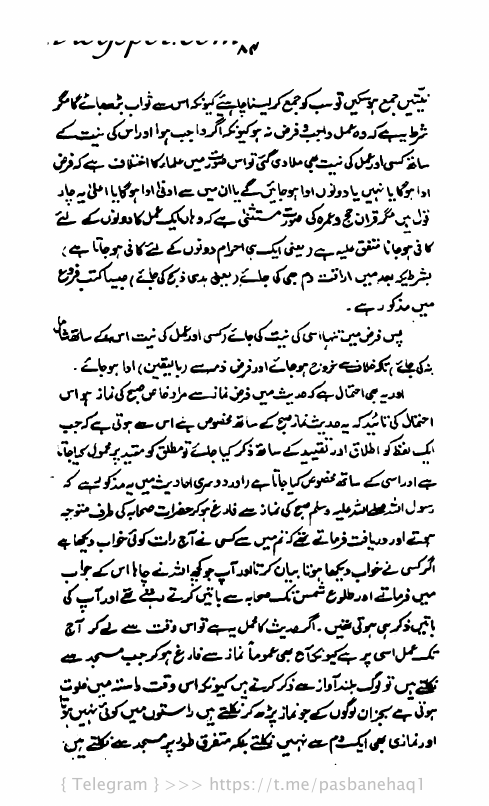 ۸۴
نیتیں جمع ہوسکیں تو سب کو جمع کرلینا چاہئے کیونکہ اس سے ثواب بڑھ جائے گا مگر
شرط یہ ہے کہ وہ عمل واجب و فرض نہ ہو کیونکہ اگر واجب ہوا اور اس کی نیت کے
ساتھ کسی اور عمل کی نیت بھی ملا دی گئی تو اس صورت میں علماء کا اختلاف ہے کہ فرض
ادا ہوگا یا نہیں یا دونوں ادا ہو جائیں گے یا ان میں سے ادنی ادا ہوگا یا اعلی یہ چار
قول ہیں مگر قران حج و عمرہ کی صورت مستثنی ہے کہ وہاں ایک عمل کا دونوں کے لئے
کافی ہوجانا متفق علیہ ہے (یعنی ایک ہی احرام دونوں کے لئے کافی ہوجاتا ہے)
بشرطیکہ بعد میں اراقت دم بھی کی جائے (یعنی ہدی ذبح کی جائے) جیسا کتب فروع
میں مذکور ہے۔
پس فرض میں تنہا اسی کی نیت کی جائے کسی اور عمل کی نیت اس کے ساتھ شامل
نہ کی جائے تاکہ خلاف سے خروج ہوجائے اور فرض ذمہ سے (بالیقین) ادا ہوجائے۔
اور یہ بھی احتمال ہے کہ حدیث میں فرض نماز سے مراد خاص صبح کی نماز ہو اس
احتمال کی تائید کہ یہ حدیث نماز صبح کے ساتھ مخصوص ہے اس سے ہوتی ہے کہ جب
ایک لفظ کو اطلاق اور تقیید کے ساتھ ذکر کیا جائے تو مطلق کو مقید پر محمول کیا جاتا
ہے اور اسی کے ساتھ مخصوص کیا جاتا ہے (اور دوسری احادیث میں یہ مذکور ہے کہ
رسول اللہ صلی اللہ علیہ وسلم صبح کی نماز سے فارغ ہوکر حضرات صحابہ کی طرف متوجہ
ہوتے اور دریافت فرماتے تھے کہ تم میں سے کسی نے آج رات کوئی خواب دیکھا ہے
اگر کسی نے خواب دیکھا ہوتا بیان کرتا اور آپ جو کچھ اللہ نے چاہا اس کے جواب
میں فرماتے اور طلوع شمس تک صحابہ سے باتیں کرتے رہتے تھے اور آپ کی
باتیں ذکر ہی ہوتی تھیں۔ اگر حدیث کا محمل یہ ہے تو اس وقت سے لے کر آج
تک عمل اسی پر ہے کیونکہ آج بھی عموماً نماز سے فارغ ہوکر جب مسجد سے
نکلتے ہیں تو لوگ بلند آواز سے ذکر کرتے ہیں کیونکہ اس وقت راستہ میں خلوت
ہوتی ہے بجز ان لوگوں کے جو نماز پڑھ کر نکلتے ہیں راستوں میں کوئی نہیں ہوتا
اور نمازی بھی ایک دم سے نہیں نکلتے بلکہ متفرق طور پر مسجد سے نکلتے ہیں
{ Telegram } >>> https://t.me/pasbanehaq1